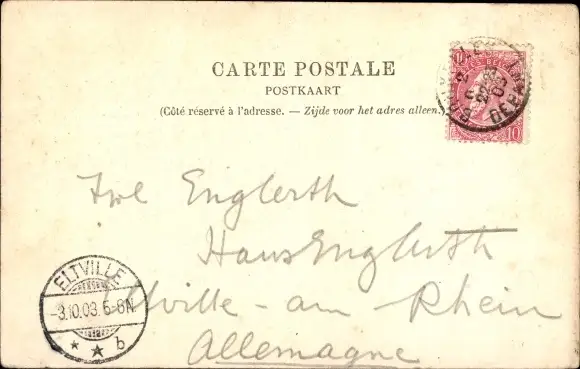 CARTE POSTALE
POSTKAART
(Côté réservé à l'adresse. — Zijde voor het adres alleen.)
10
10
Frl Englerth
Haus Englerth
Eltville - am Rhein
Allemagne
ELTVILLE
-3.10.03.6-8N.
* * b